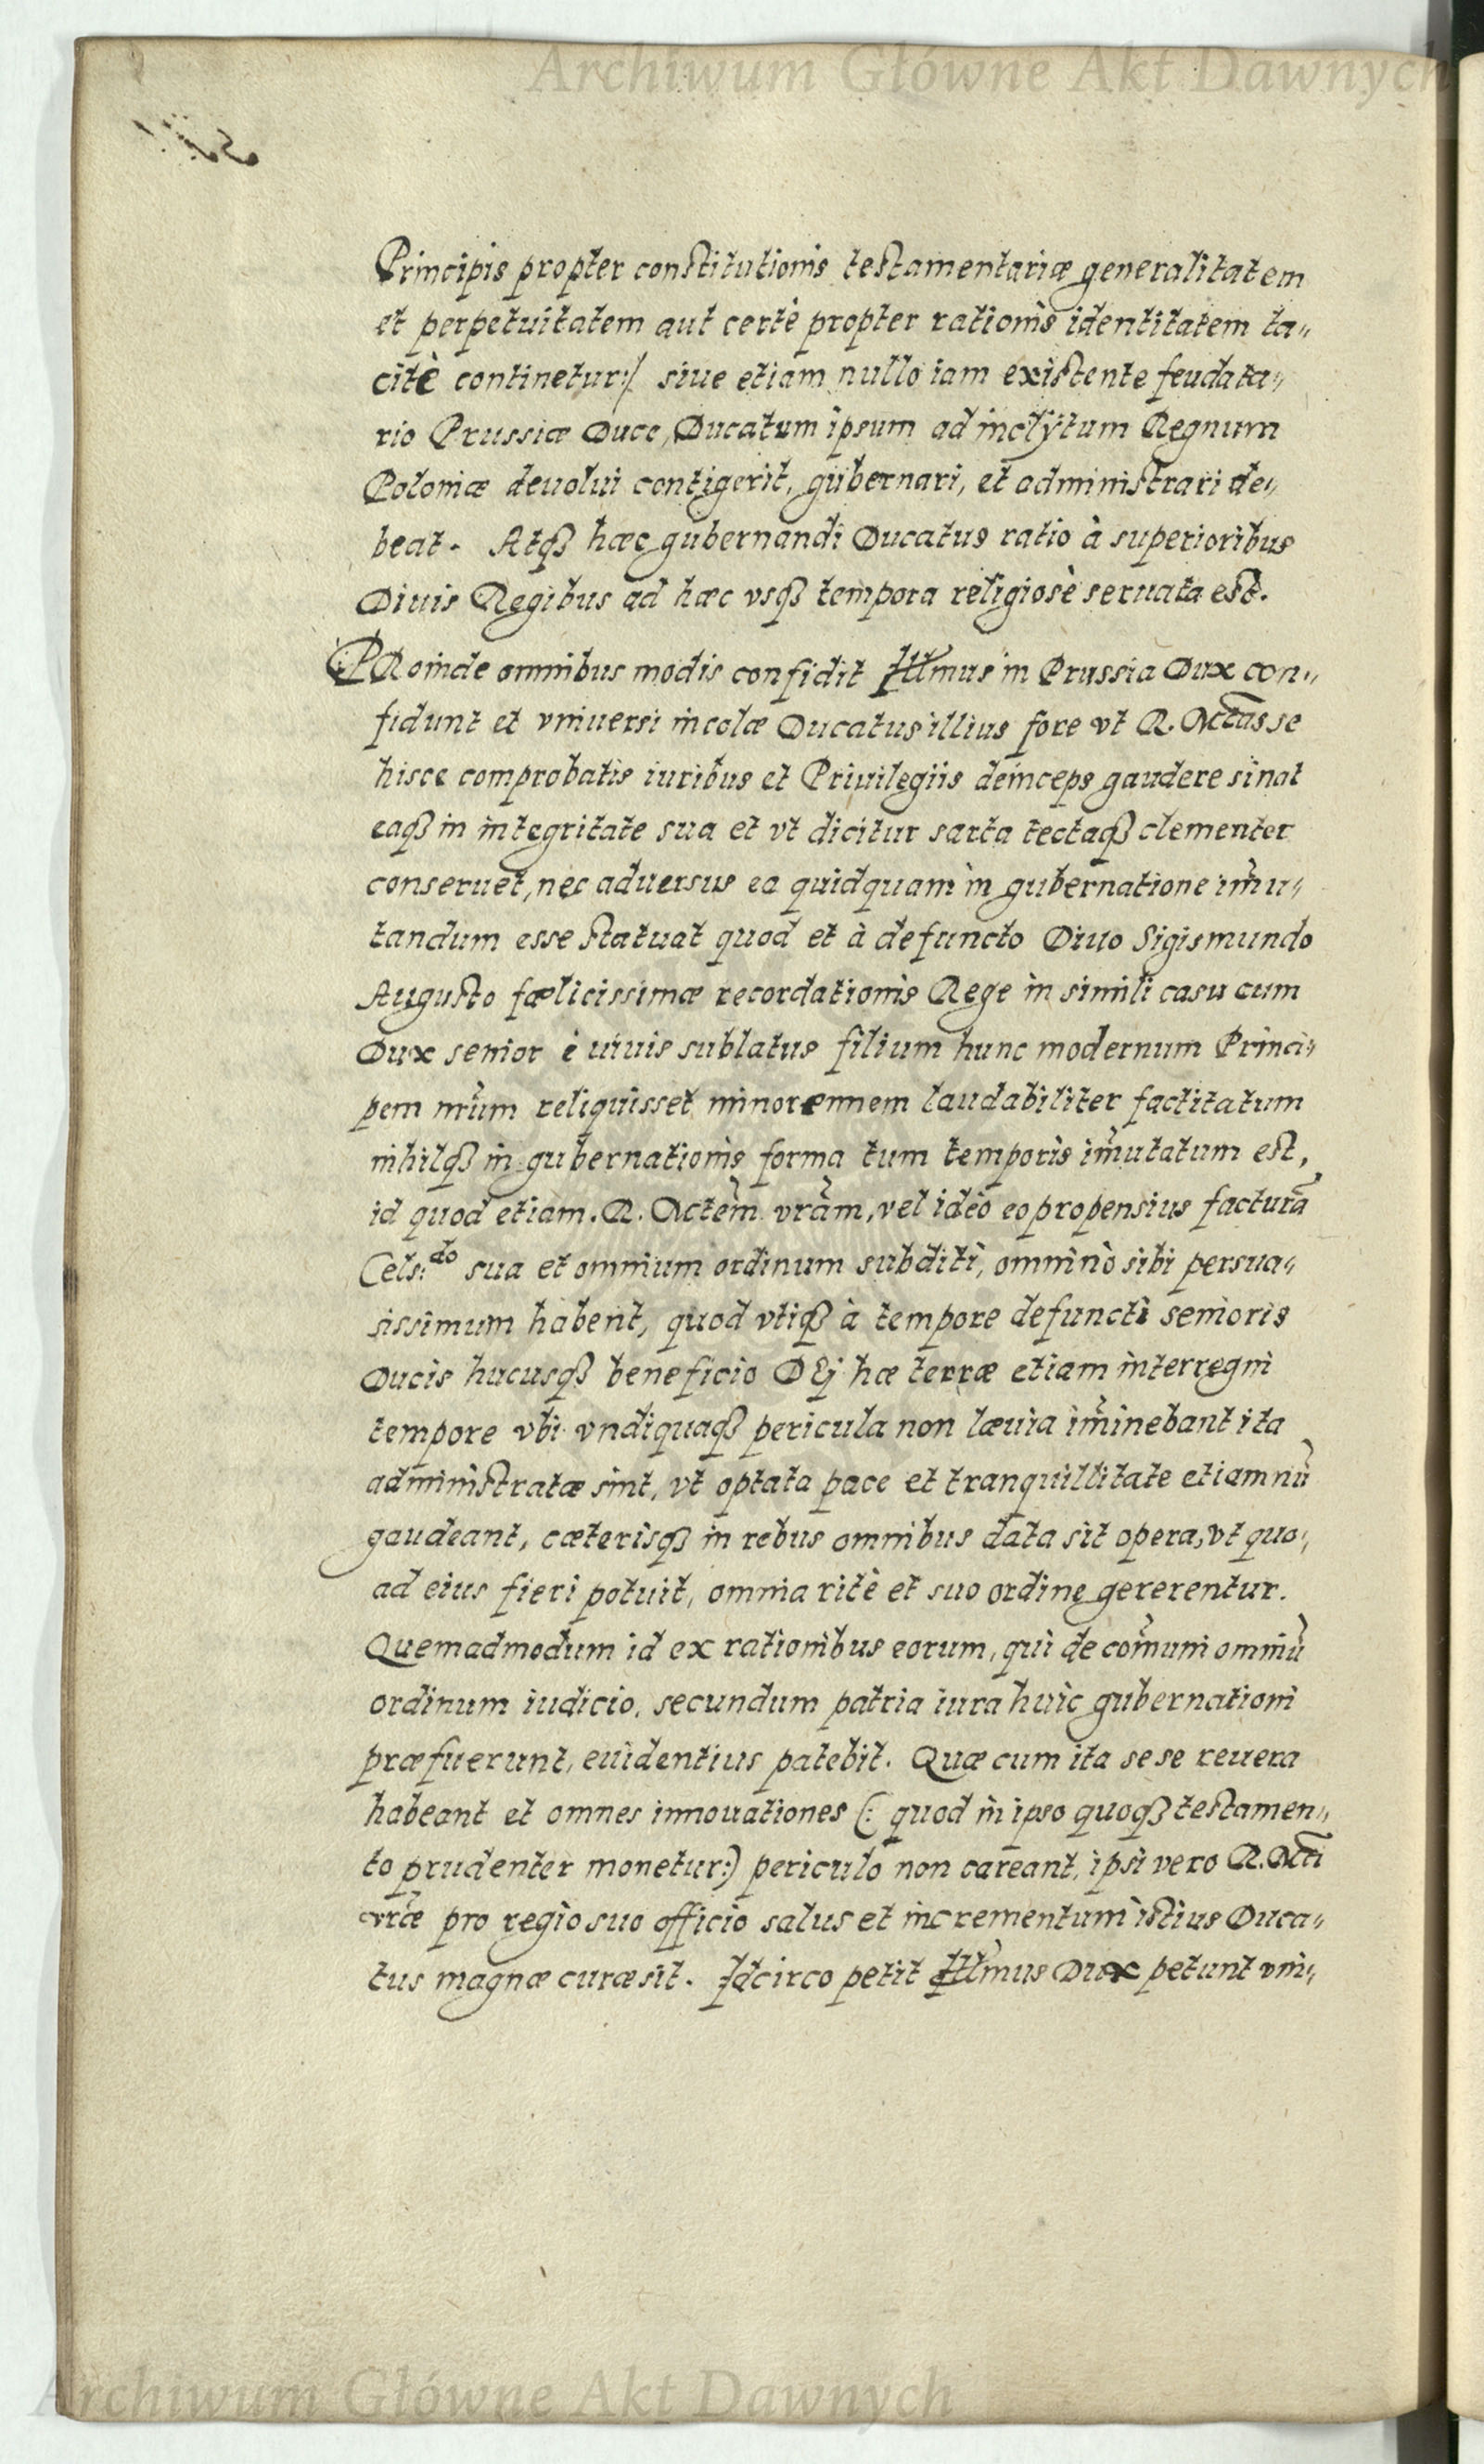 Archiwum Główne Akt Dawnych
Principis propter constitutionis testamentariæ generalitatem
et perpetuitatem aut certè propter rationis identitatem ta„
citè continetur:/ siue etiam nullo iam existente feudata„
rio Prussiæ Duce, Ducatum ipsum ad inclÿtum Regnum
Poloniæ deuolui contigerit, gubernari, et administrari de„
beat. Atqꝫ hæc gubernandi Ducatus ratio à superioribus
Diuis Regibus ad hæc vsqꝫ tempora religiosè seruata est.
PRoinde omnibus modis confidit Illmus in Prussia Dux con„
fidunt et vniuersi incolæ Ducatus illius fore vt R. Mtas se
hisce comprobatis iuribus et Priuilegiis deinceps gaudere sinat
eaqꝫ in integritate sua et vt dicitur sarta tectaqꝫ clementer
conseruet, nec aduersus ea quidquam in gubernatione im̃u„
tandum esse statuat quod et à defuncto Diuo Sigismundo
Augusto fælicissimæ recordationis Rege in simili casu cum
Dux senior è uiuis sublatus filium hunc modernum Princi„
pem nr̃um reliquisset minorennem laudabiliter factitatum
nihilqꝫ in gubernationis forma tum temporis im̃utatum est,
id quod etiam. R. Mctem̃ vrãm, vel ideo eo propensius facturã
Cels:do sua et omnium ordinum subditi, omninò sibi persua„
sissimum habent, quod vtiqꝫ à tempore defuncti senioris
Ducis hucusqꝫ beneficio DEj hæ terræ etiam interregni
tempore vbi vndiquaqꝫ pericula non læuia im̃inebant ita
administratæ sint, vt optata pace et tranquillitate etiamnũ
gaudeant, cæterisqꝫ in rebus omnibus data sit opera, vt quo„
ad eius fieri potuit, omnia ritè et suo ordine gererentur.
Quemadmodum id ex rationibus eorum, qui de com̃uni omniũ
ordinum iudicio, secundum patria iura huic gubernationi
præfuerunt, euidentius patebit. Quæ cum ita sese reuera
habeant et omnes innouationes (: quod in ipso quoqꝫ testamen„
to prudenter monetur:) periculo non careant, ipsi vero R. Mti
vrãe pro regio suo officio salus et incrementum istius Duca„
tus magnæ curæ sit. Idcirco petit Illmus Dux petunt vni„
Archiwum Główne Akt Dawnych